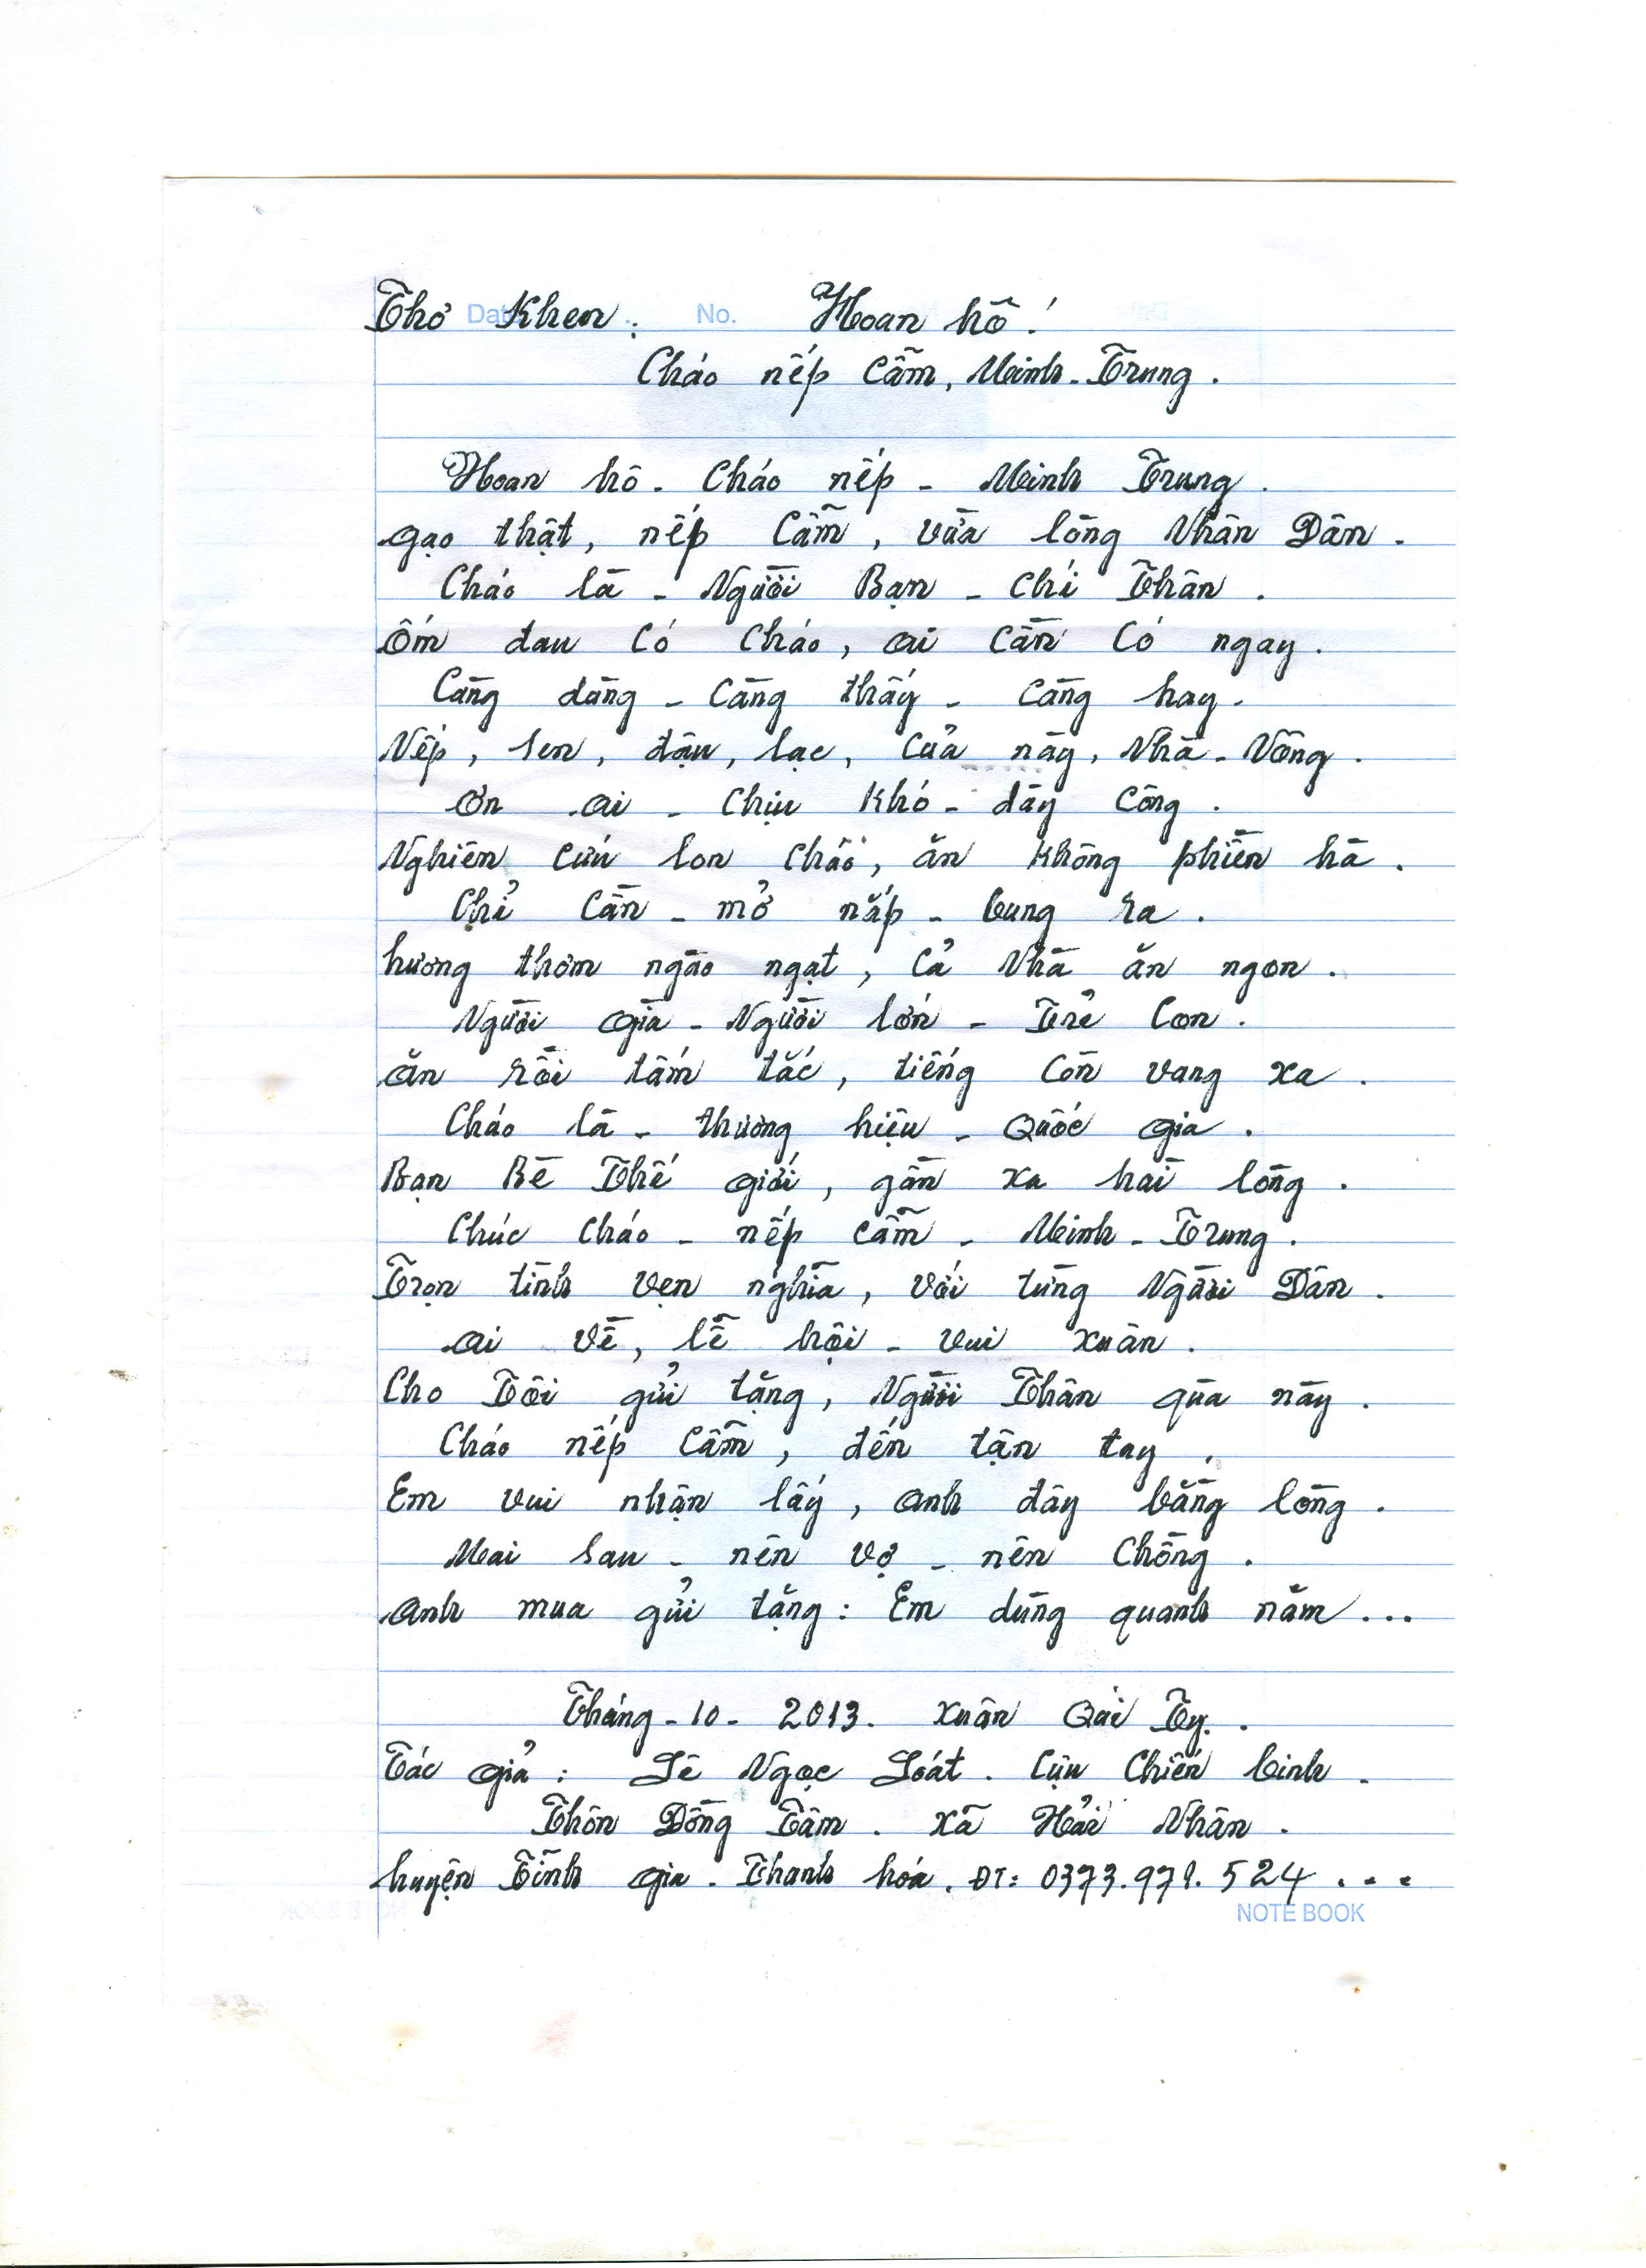 Thơ Khen: Hoan hô!
Date No.
Cháo nếp Cẩm, Minh-Trung.
Hoan hô - Cháo nếp - Minh Trung.
gạo thật, nếp Cẩm, vừa lòng Nhân Dân.
Cháo là - Người Bạn - Chí Thân.
Ốm đau Có Cháo, ai Cần Có ngay.
Càng dùng - Càng thấy - Càng hay.
Nếp, sen, đậu, lạc, Của này, Nhà-Nông.
ơn ai - Chịu Khó - dày Công.
Nghiên Cứu lon Cháo, ăn Không phiền hà.
Chỉ Cần - mở nắp - bung ra.
hương thơm ngào ngạt, Cả Nhà ăn ngon.
Người già - Người lớn - Trẻ Con.
ăn rồi tấm tắc, tiếng Còn vang xa.
Cháo là - thương hiệu - Quốc gia.
Bạn Bè Thế giới, gần xa hài lòng.
Chúc Cháo - nếp Cẩm - Minh-Trung.
Trọn tình vẹn nghĩa, với từng Người Dân.
ai về, lễ hội - vui xuân.
Cho Tôi gửi tặng, Người Thân qùa này.
Cháo nếp Cẩm, đến tận tay.
Em vui nhận lấy, anh đây bằng lòng.
Mai sau - nên vợ - nên Chồng.
anh mua gửi tặng: Em dùng quanh năm...
Tháng-10-2013. Xuân Qúi Tỵ.
Tác giả: Lê Ngọc Loát. Cựu Chiến binh.
Thôn Đồng Tâm. xã Hải Nhân.
huyện Tĩnh gia. Thanh hóa. ĐT: 0373.971.524...
NOTE BOOK